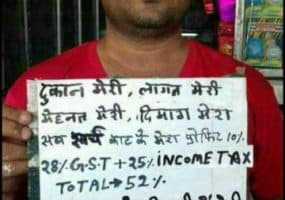 दुकान मेरी, लागत मेरी
मेहनत मेरी, दिमाग मेरा
सब खर्च काट के मेरा प्रोफिट 10%
28% G.S.T + 25% INCOME TAX
TOTAL→52%